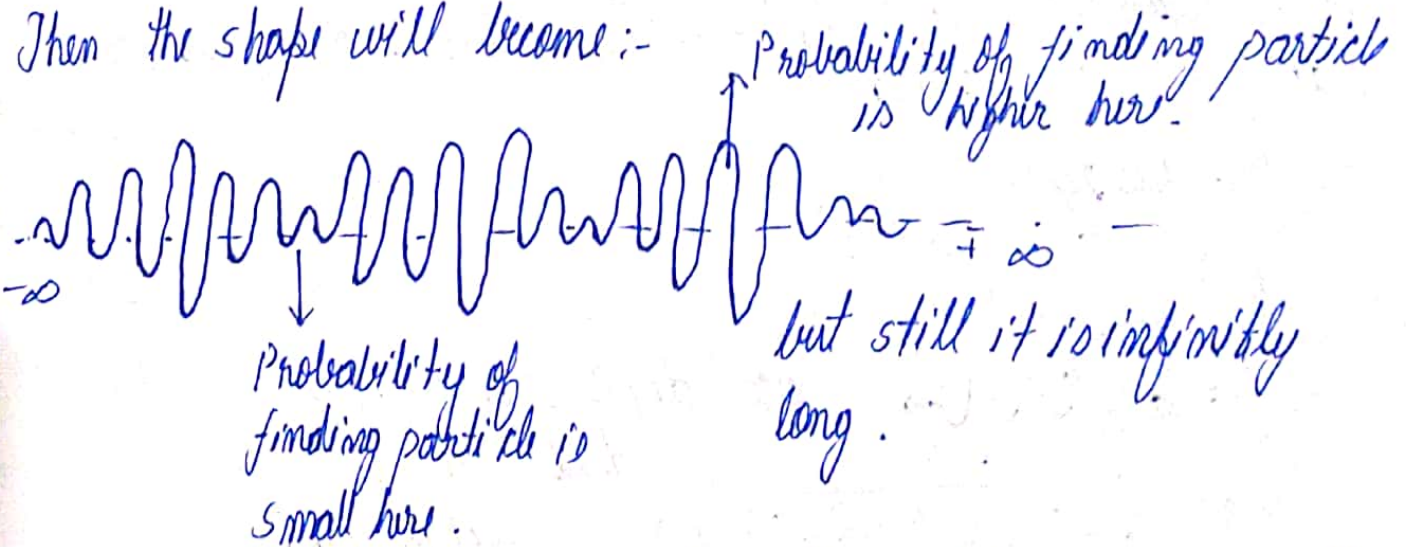 Then the shape will become :-
Probability of finding particle
is higher here.
-∞
+ ∞
Probability of
finding particle is
small here.
but still it is infinitly
long.